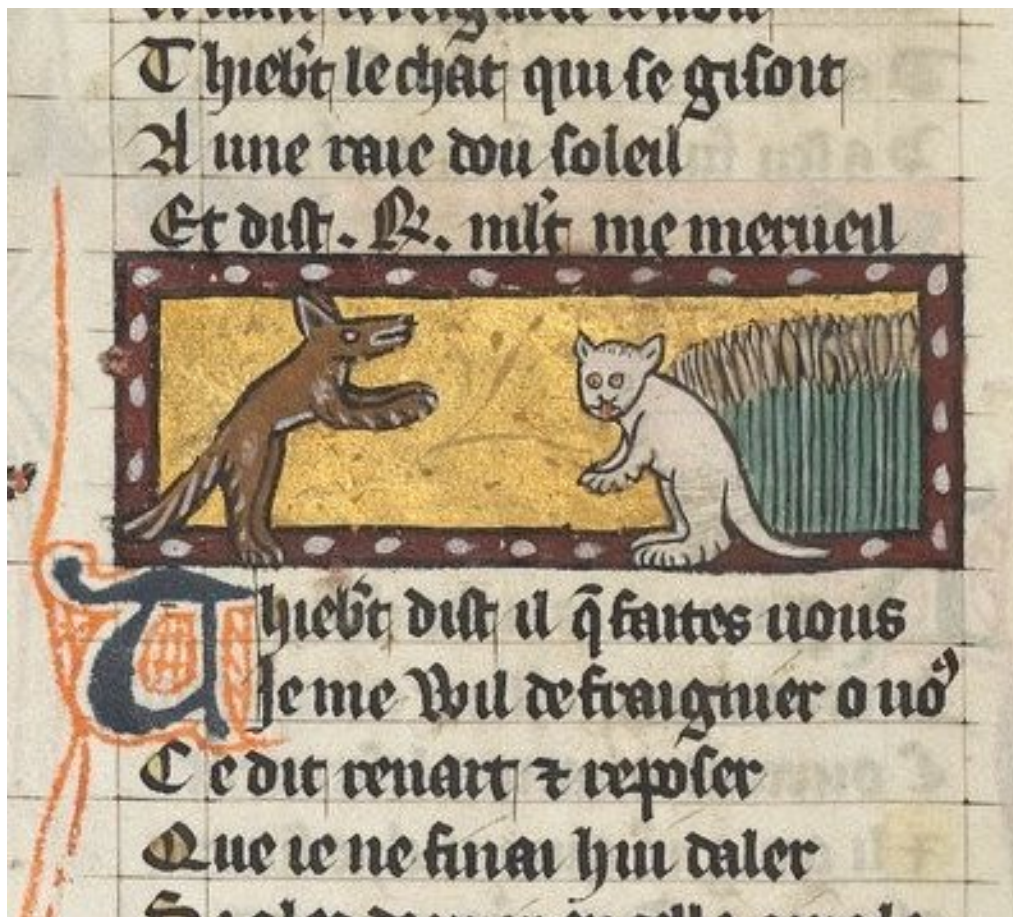 Thieb't le chat qui se gisoit
A une raie dou soleil
Et dist . R. ml't me merueil
Thieb't dist il q̃ faites uous
Je me wil desraignier o uo9
Ce dit renart ⁊ reposer
Que ie ne finai hui daler